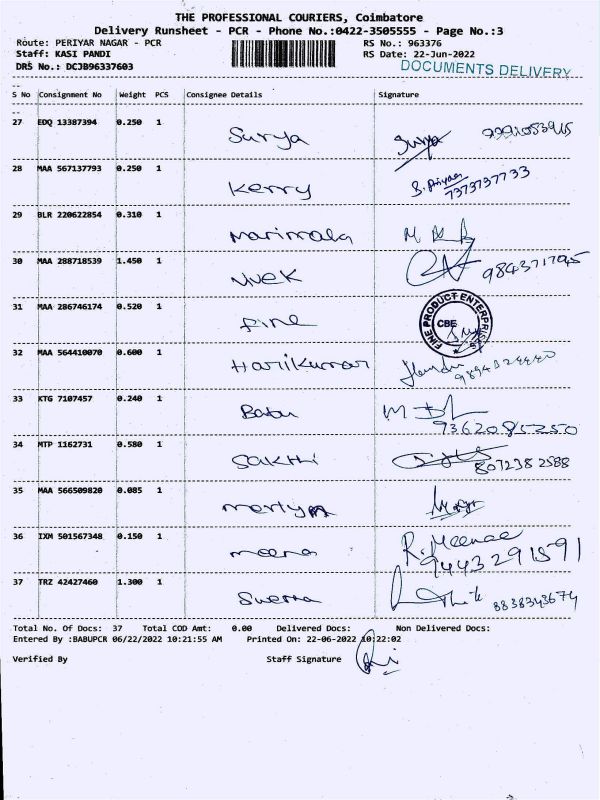 THE PROFESSIONAL COURIERS, Coimbatore
Delivery Runsheet - PCR - Phone No.:0422-3505555 - Page No.:3
Route: PERIYAR NAGAR - PCR RS No.: 963376
Staff: KASI PANDI RS Date: 22-Jun-2022
DRS No.: DCJB96337603 DOCUMENTS DELIVERY
S No Consignment No Weight PCS Consignee Details Signature
27 EDQ 13387394 0.250 1 Surya Surya
28 MAA 567137793 0.250 1 Kerry S. Priyaa 7373737733
29 BLR 220622854 0.310 1 Marimala
30 MAA 288718539 1.450 1 Vivek 984371795
31 MAA 286746174 0.520 1 Fine FINE PRODUCT ENTERPRISES CBE
32 MAA 564410070 0.600 1 Harikumar
33 KTG 7107457 0.240 1 Babu 9362085250
34 MTP 1162731 0.580 1 Sakthi 8072382588
35 MAA 566509820 0.085 1
36 IXM 501567348 0.150 1 meena R. Meenae 9443291591
37 TRZ 42427460 1.300 1 8838343674
Total No. Of Docs: 37 Total COD Amt: 0.00 Delivered Docs: Non Delivered Docs:
Entered By :BABUPCR 06/22/2022 10:21:55 AM Printed On: 22-06-2022 10:22:02
Verified By Staff Signature